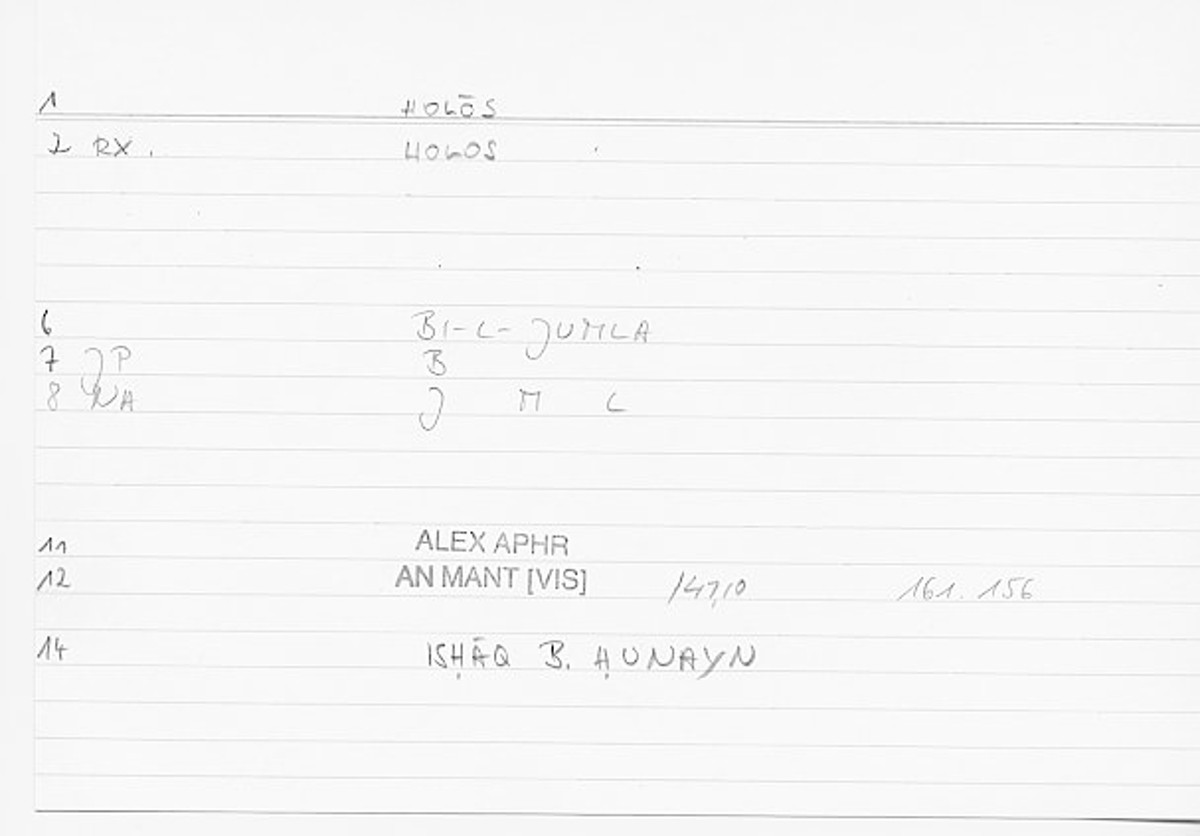 1 HOLŌS
2 RX. HOLOS
6 BI-L-JUMLA
7 JP B
8 NA J M L
11 ALEX APHR
12 AN MANT [VIS] /47,10 161. 156
14 ISḤĀQ B. ḤUNAYN